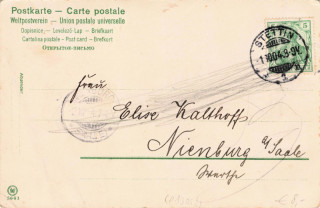 Postkarte – Carte postale
Weltpostverein – Union postale universelle
Dopisnice – Levelező-Lap – Brefkort
Cartolina postale – Post card – Brevkort
ОТКРЫТОЕ ПИСЬМО
STETTIN
Frau
Elise Kalthoff
Nienburg a/Saale